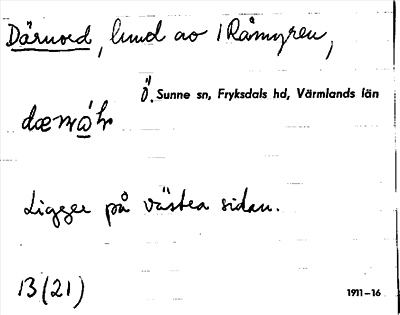 Därnord, lund av /Råmyren,
Ö. Sunne sn, Fryksdals hd, Värmlands län
Ligger på västra sidan.
13(21)
1911–16